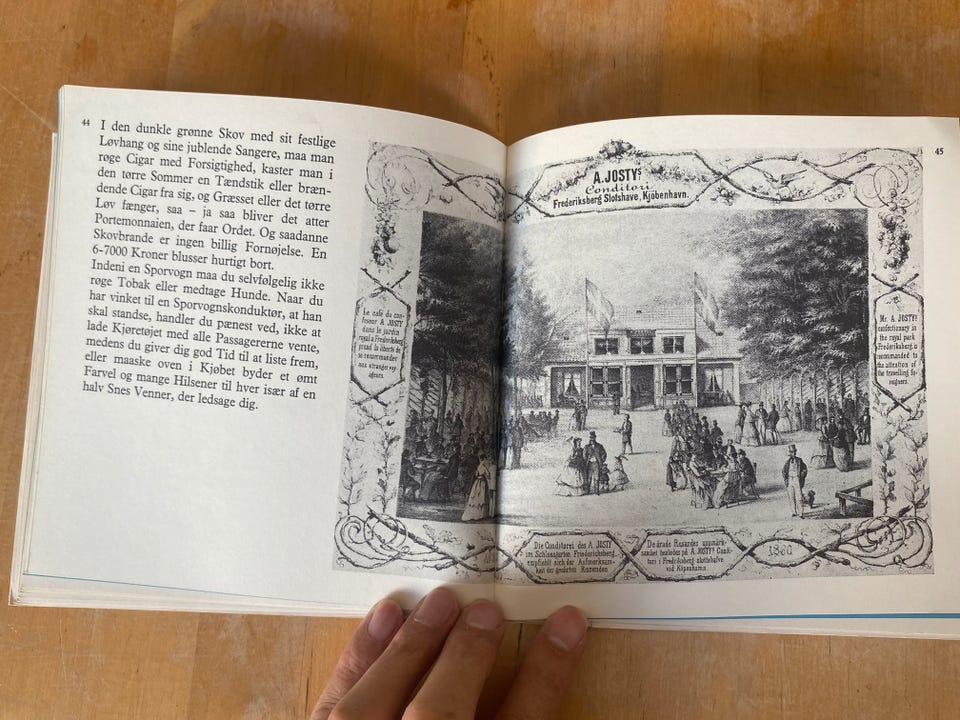 44
I den dunkle grønne Skov med sit festlige
Løvhang og sine jublende Sangere, maa man
røge Cigar med Forsigtighed, kaster man i
den tørre Sommer en Tændstik eller bræn-
dende Cigar fra sig, og Græsset eller det tørre
Løv fænger, saa – ja saa bliver det atter
Portemonnaien, der faar Ordet. Og saadanne
Skovbrande er ingen billig Fornøjelse. En
6-7000 Kroner blusser hurtigt bort.
Indeni en Sporvogn maa du selvfølgelig ikke
røge Tobak eller medtage Hunde. Naar du
har vinket til en Sporvognskonduktør, at han
skal standse, handler du pænest ved, ikke at
lade Kjøretøjet med alle Passagererne vente,
medens du giver dig god Tid til at liste frem,
eller maaske oven i Kjøbet byder et ømt
Farvel og mange Hilsener til hver især af en
halv Snes Venner, der ledsage dig.
45
A. JOSTYs
Conditori
Frederiksberg Slotshave, Kjöbenhavn.
Le café du con-
fiseur A. JOSTY
dans le jardin
royal a Frederiksberg
prend la liberté de
se recommander
aux étranger voy-
ageurs.
Mr. A. JOSTYs
confectionary in
the royal park
Frederiksberg is
recommanded to
the attention of
the travelling fo-
reigners.
Die Conditorei des A. JOSTY
im Schlossgarten Friedericksberg,
empfiehlt sich der Aufmerksam-
keit der geehrten Reisenden
De ärade Resandes uppmärk-
samhet
på A. JOSTYs Condi-
tori i Fredriksberg slottshafve
vid Köpenhamn.
1860